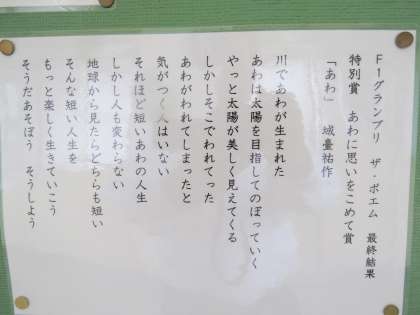 F1グランプリ　ザ・ポエム　最終結果
特別賞　あわに思いをこめて賞
「あわ」　城臺祐作
川であわが生まれた
あわは太陽を目指してのぼっていく
やっと太陽が美しく見えてくる
しかしそこでわれてった
あわがわれてしまったと
気がつく人はいない
それほど短いあわの人生
しかし人も変わらない
地球から見たらどちらも短い
そんな短い人生を
もっと楽しく生きていこう
そうだあそぼう　そうしよう